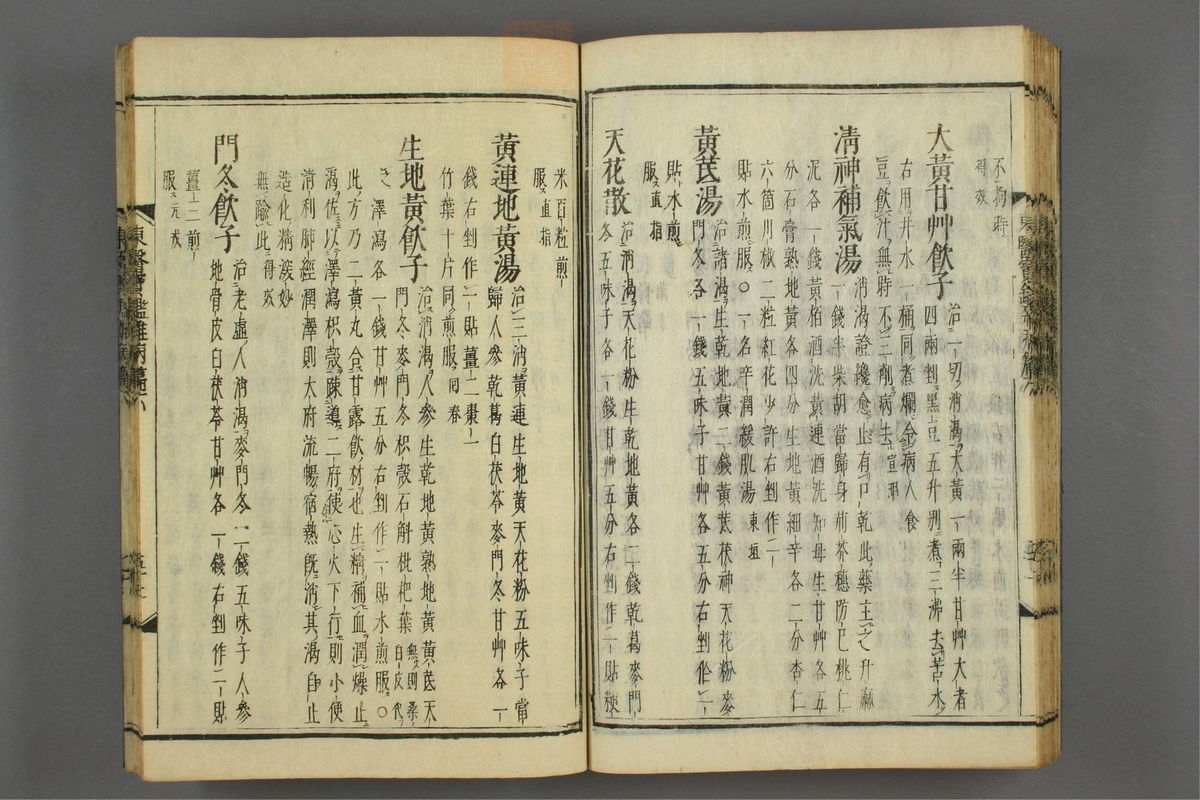 不拘時
得效
大黃甘艸飮子 治一切消渴大黃一兩半甘艸大者
四兩剉黑豆五升別煮三沸去苦水
右用井水一桶同煮爛令病人食
豆飮汁無時不三削病去 宣明
清神補氣湯 消渴證纔愈止有口乾此藥主之升麻
一錢半柴胡當歸身荊芥穗防已桃仁
泥各一錢黃栢酒洗黃連酒洗知母生甘艸各五
分石膏熟地黃各四分生地黃細辛各二分杏仁
六箇川椒二粒紅花少許右剉作一
貼水煎服○一名辛潤緩肌湯 東垣
黃芪湯 治諸渴生乾地黃二錢黃芪茯神天花粉麥
門冬各一錢五味子甘艸各五分右剉作一
貼水煎
服 直指
天花散 治消渴天花粉生乾地黃各二錢乾葛麥門
冬五味子各一錢甘艸五分右剉作一貼粳
米百粒煎
服 直指
黃連地黃湯 治三消黃連生地黃天花粉五味子當
歸人參乾葛白茯苓麥門冬甘艸各一
錢右剉作一貼薑二棗一
竹葉十片同煎服 回春
生地黃飮子 治消渴人參生乾地黃熟地黃黃芪天
門冬麥門冬枳殼石斛枇杷葉 無則桑白皮代
之 澤瀉各一錢甘艸五分右剉作二貼水煎服○
此方乃二黃丸合甘露飮材也生精補血潤燥止
渴佐以澤瀉枳殼踈導二府使心火下行則小便
清利肺經潤澤則大府流暢宿熱旣消其渴自止
造化精深妙
無踰此 得效
門冬飮子 治老虛人消渴麥門冬二錢五味子人參
地骨皮白茯苓甘艸各一錢右剉作一貼
薑二煎
服 元戎
東醫寶鑑雜病篇六